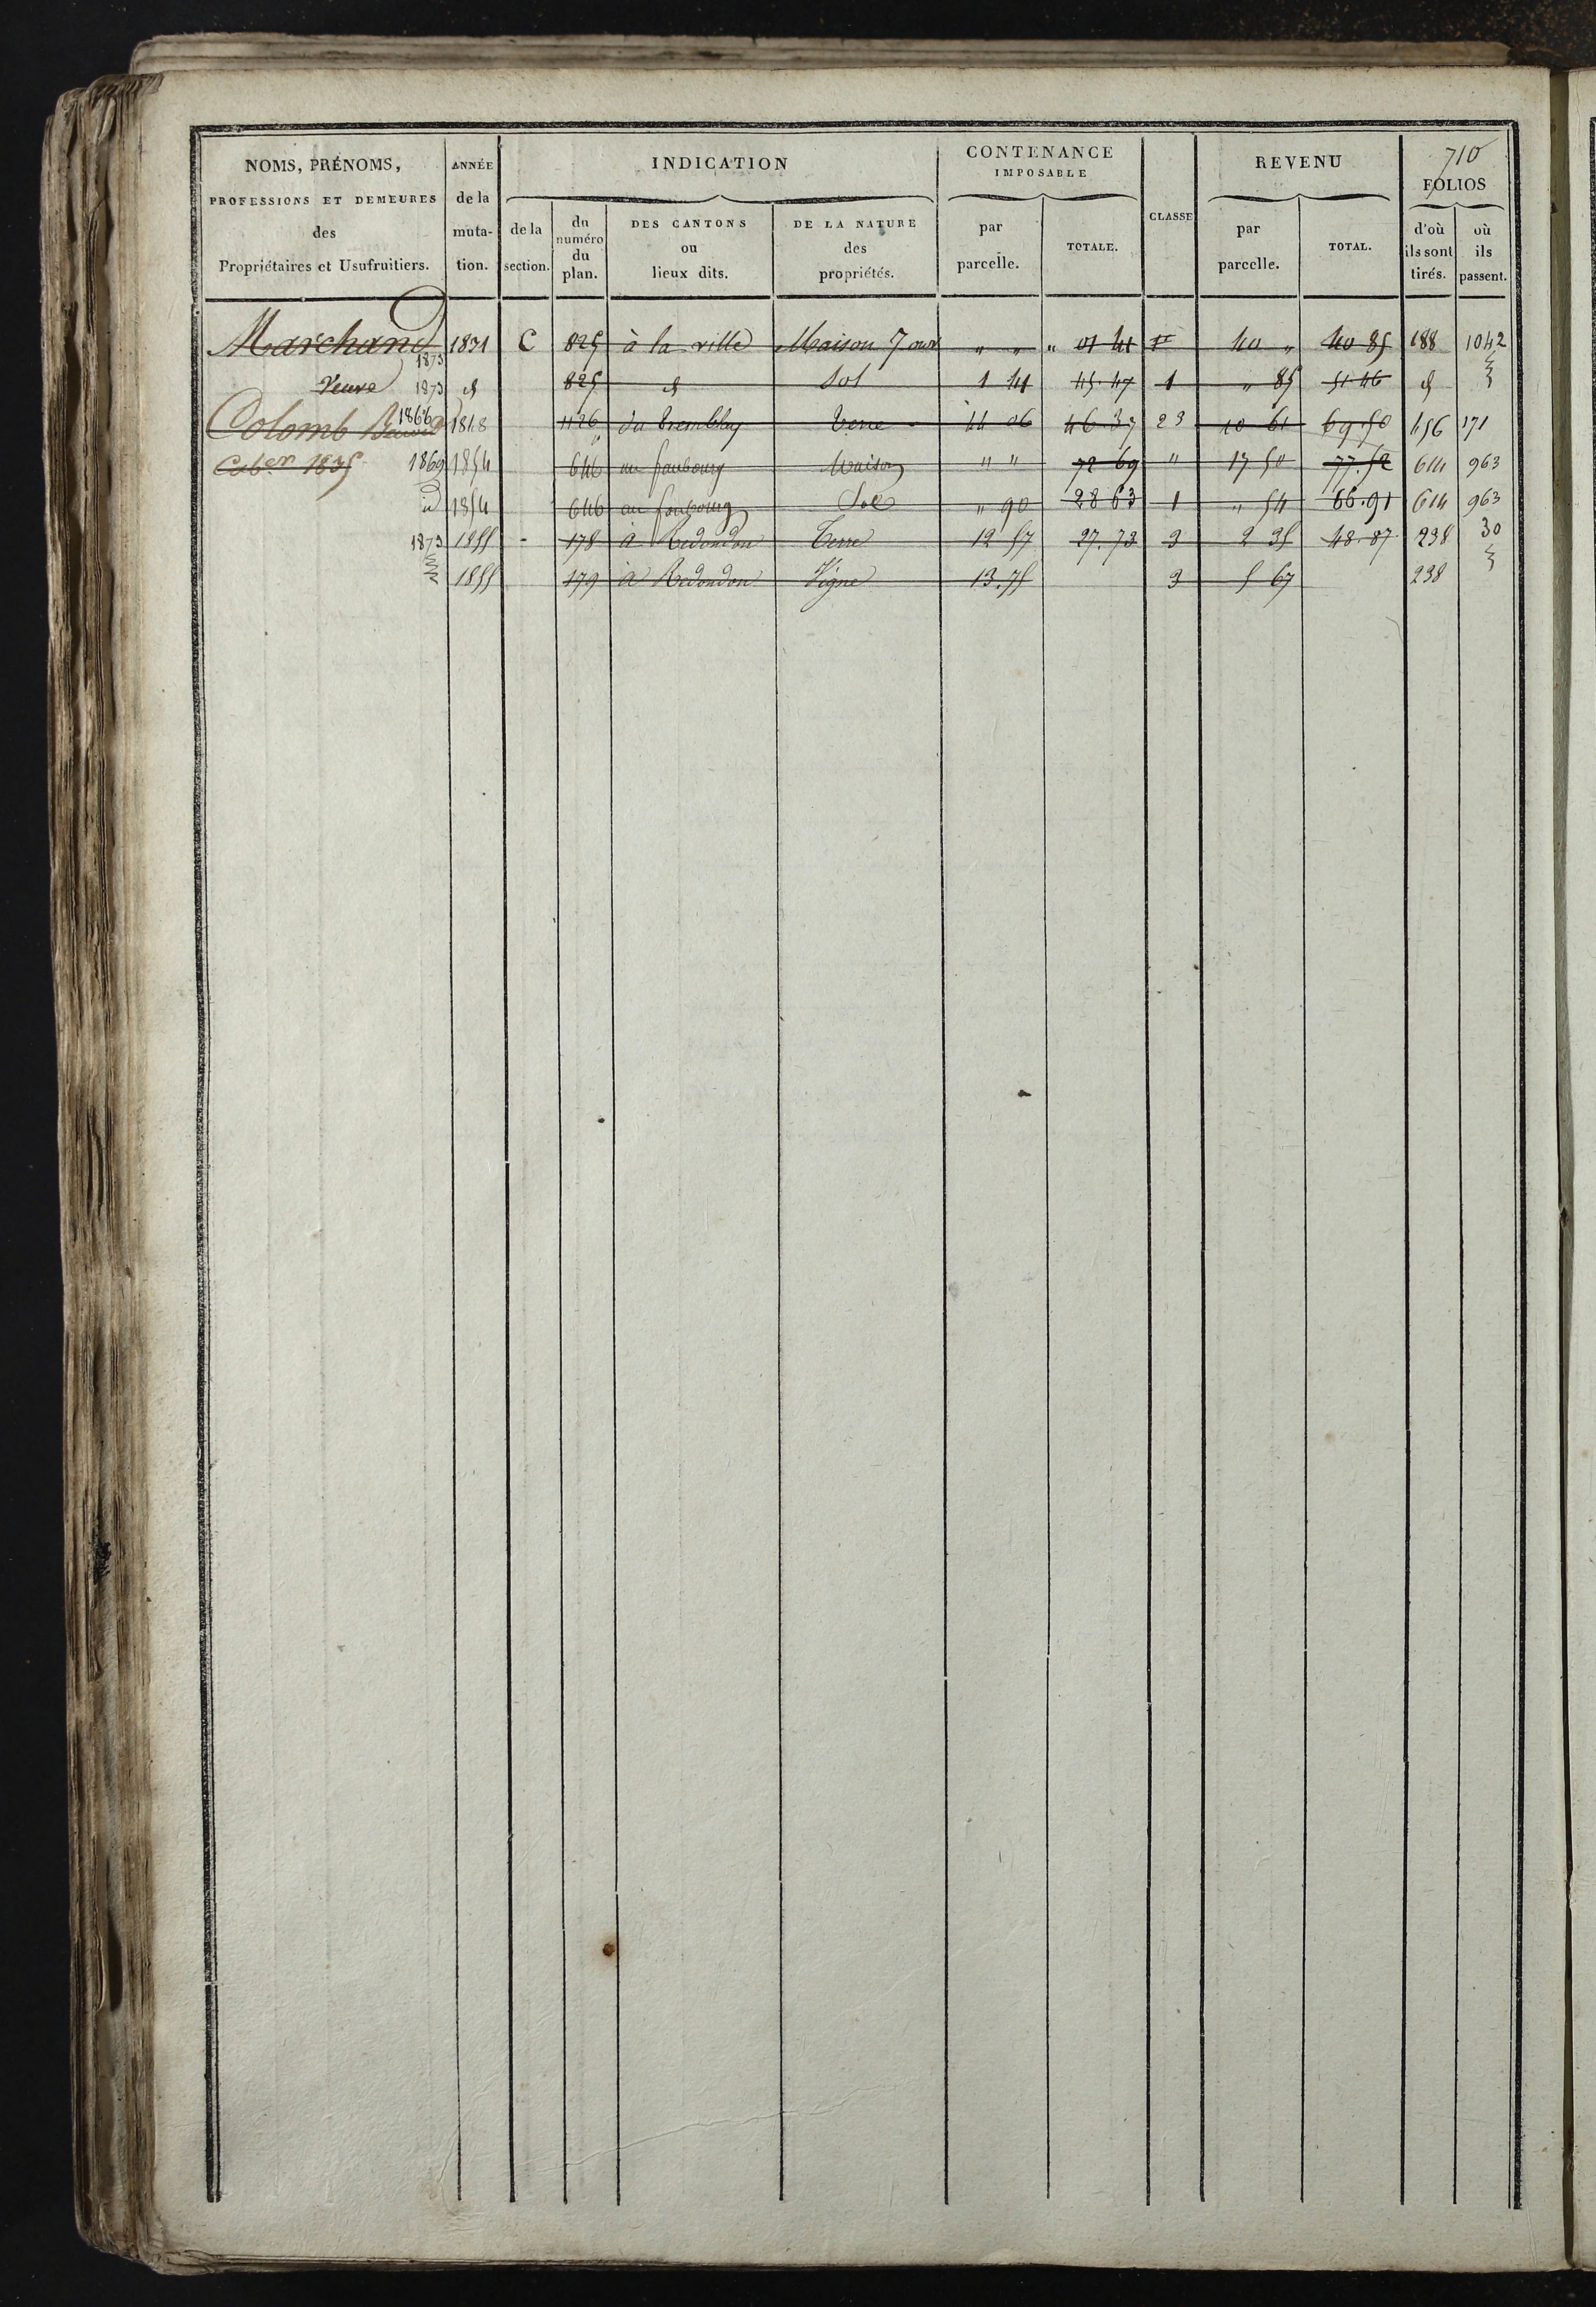 710
NOMS, PRÉNOMS,
PROFESSIONS ET DEMEURES
des
Propriétaires et Usufruitiers.
ANNÉE
de la
muta-
tion.
INDICATION
de la
section.
du
numéro
du
plan.
DES CANTONS
ou
lieux dits.
DE LA NATURE
des
propriétés.
CONTENANCE
IMPOSABLE
par
parcelle.
TOTALE.
CLASSE
REVENU
par
parcelle.
TOTAL.
FOLIOS
d'où
ils sont
tirés.
où
ils
passent.
Marchand 1873 1831 C 825 à la ville Maison 7 ouv " " " 01 41 40 " 40 85 188 1042
Veuve 1873 d 825 d Sol 1 41 45.47 1 " 85 51 46 d
Colomb 1866 1848 1126 du Trembley Terre 44 06 46.37 23 10 61 69.50 456 171
1835 1869 1854 646 au faubourg Maison " " 72 69 " 17 50 77.52 614 963
id 1854 646 au faubourg Sol " 90 28 63 1 " 54 66.91 614 963
1873 1855 - 178 à Redondon Terre 12 57 27.73 3 2 35 48.87 238 30
1855 179 à Redondon Vigne 13.75 3 5 67 238